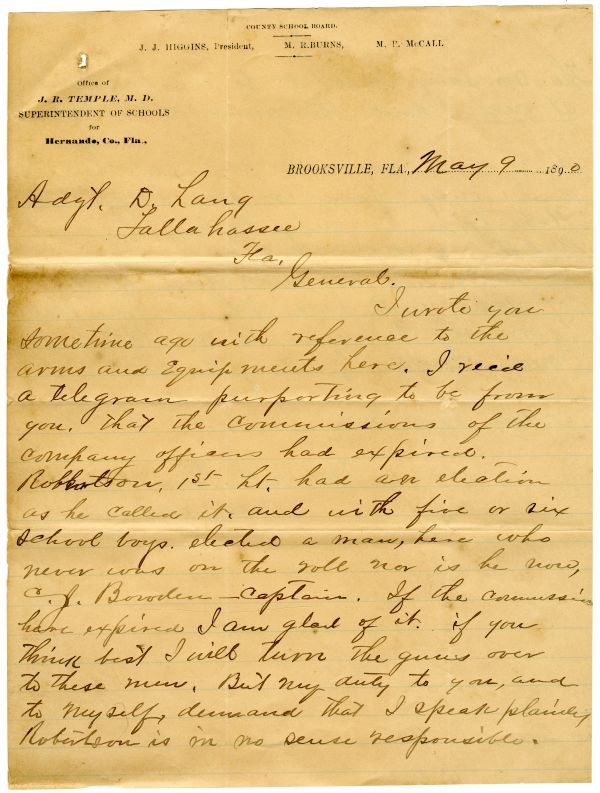 COUNTY SCHOOL BOARD.
J. J. HIGGINS, President, M. R. BURNS, M. P. McCALL
Office of
J. R. TEMPLE, M. D.
SUPERINTENDENT OF SCHOOLS
for
Hernando, Co., Fla.,
BROOKSVILLE, FLA., May 9 1890
Adgt. D. Lang
Tallahassee
Fla,
General.
I wrote you
sometime ago with reference to the
arms and Equipments here. I recie
a telegram purporting to be from
you. that the commissions of the
company officers had expired.
Robertson, 1st Lt. had an election
as he called it. and with five or six
school boys. elected a man, here who
never was on the roll nor is he now,
C. J. Bowden – Captain. If the commission
have expired I am glad of it. if you
think best I will turn the guns over
to these men. But my duty to you, and
to myself, demand that I speak plainly
Robertson is in no sense responsible.